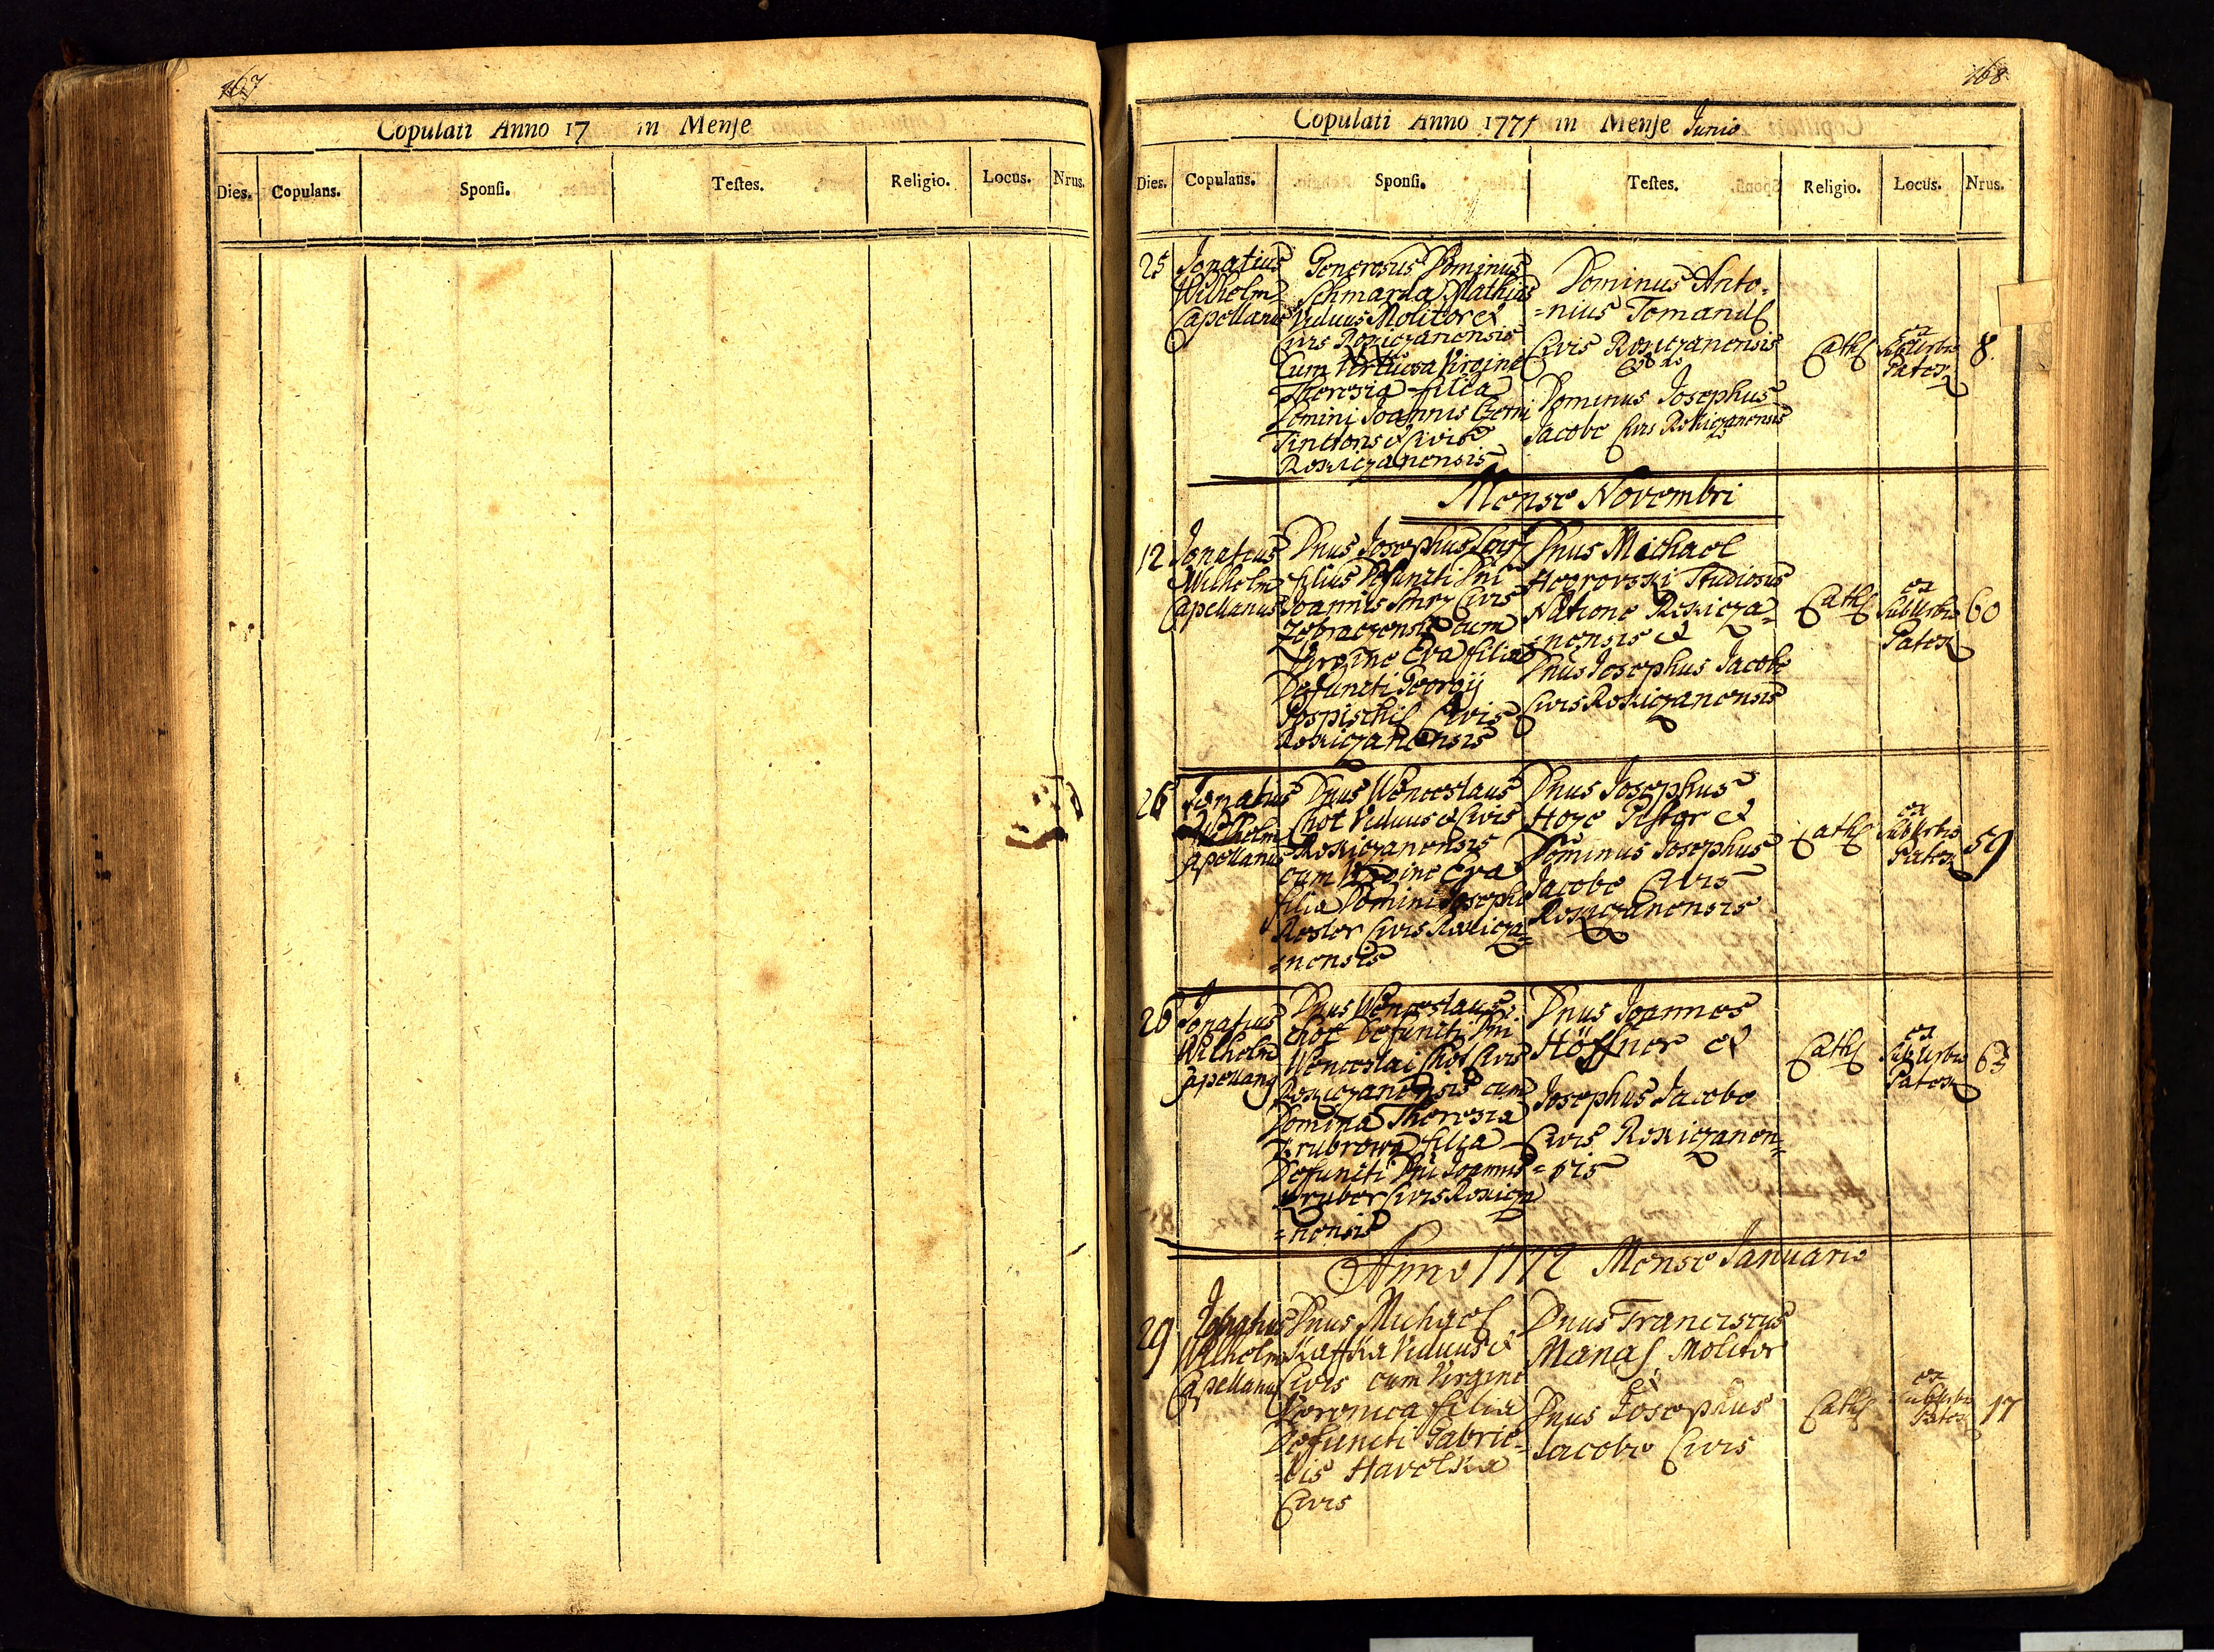 167
Copulati Anno 17 in Mense
Dies. Copulans. Sponsi. Testes. Religio. Locus. Nrus.
168
Copulati Anno 1771 in Mense Junio
Dies. Copulans. Sponsi. Testes. Religio. Locus. Nrus.
25
Ignatius
Wilhelm
Capellanus
Generosus Dominus
Schmarda Mathias
Viduus Molitor et
Civis Rokiczanensis
Cum Virtuosa Virgine
Theresia filia
Domini Joannis Czerni
Tinctoris et Civis
Rokiczanensis
Dominus Anto=
=nius Tomandl
Civis Rokiczanensis
Dominus Josephus
Jacobe Civis Rokiczanensis
Cath
ex
SubUrbio
Paten
8.
Mense Novembri
12
Ignatius
Wilhelm
Capellanus
Dnus Josephus
filius Defuncti Dni
Joannis Civis
cum
Virgine Eva filia
Defuncti Georgij
Pospischil Civis
Rokiczanensis
Dnus Michael
Studiosus
Natione Rokicza=
=nensis et
Dnus Josephus Jacobe
Civis Rokiczanensis
Cath
ex
SubUrbio
Paten
60
26
Ignatius
Wilhelm
Capellanus
Dnus Wenceslaus
Chot Viduus et Civis
Rokiczanensis
cum Virgine Eva
filia Domini Josephi
Civis Rokicza=
=nensis
Dnus Josephus
Pistor et
Dominus Josephus
Jacobe Civis
Rokiczanensis
Cath
ex
SubUrbio
Paten
59
26
Ignatius
Wilhelm
Capellang
Dnus Wenceslaus
Chot Defuncti Dni
Wenceslai Chot Civis
Rokiczanensis cum
Domina Theresia
filia
Defuncti Dni Joannis
Civis Rokicza
=nensis
Dnus Joannes
Höffner et
Josephus Jacobe
Civis Rokiczanen=
=sis
Cath
ex
SubUrbio
Paten
63
Anno 1772 Mense Januario
29
Ignatius
Wilhelm
Capellanus
Dnus Michael
Kaffka Viduus et
Civis cum Virgine
Veronica filia
Defuncti Gabrie=
=lis Havelka
Civis
Dnus Franciscus
Manas Molitor
et
Dnus Josephus
Jacobe Civis
Cath
ex
SubUrbio
Paten
17